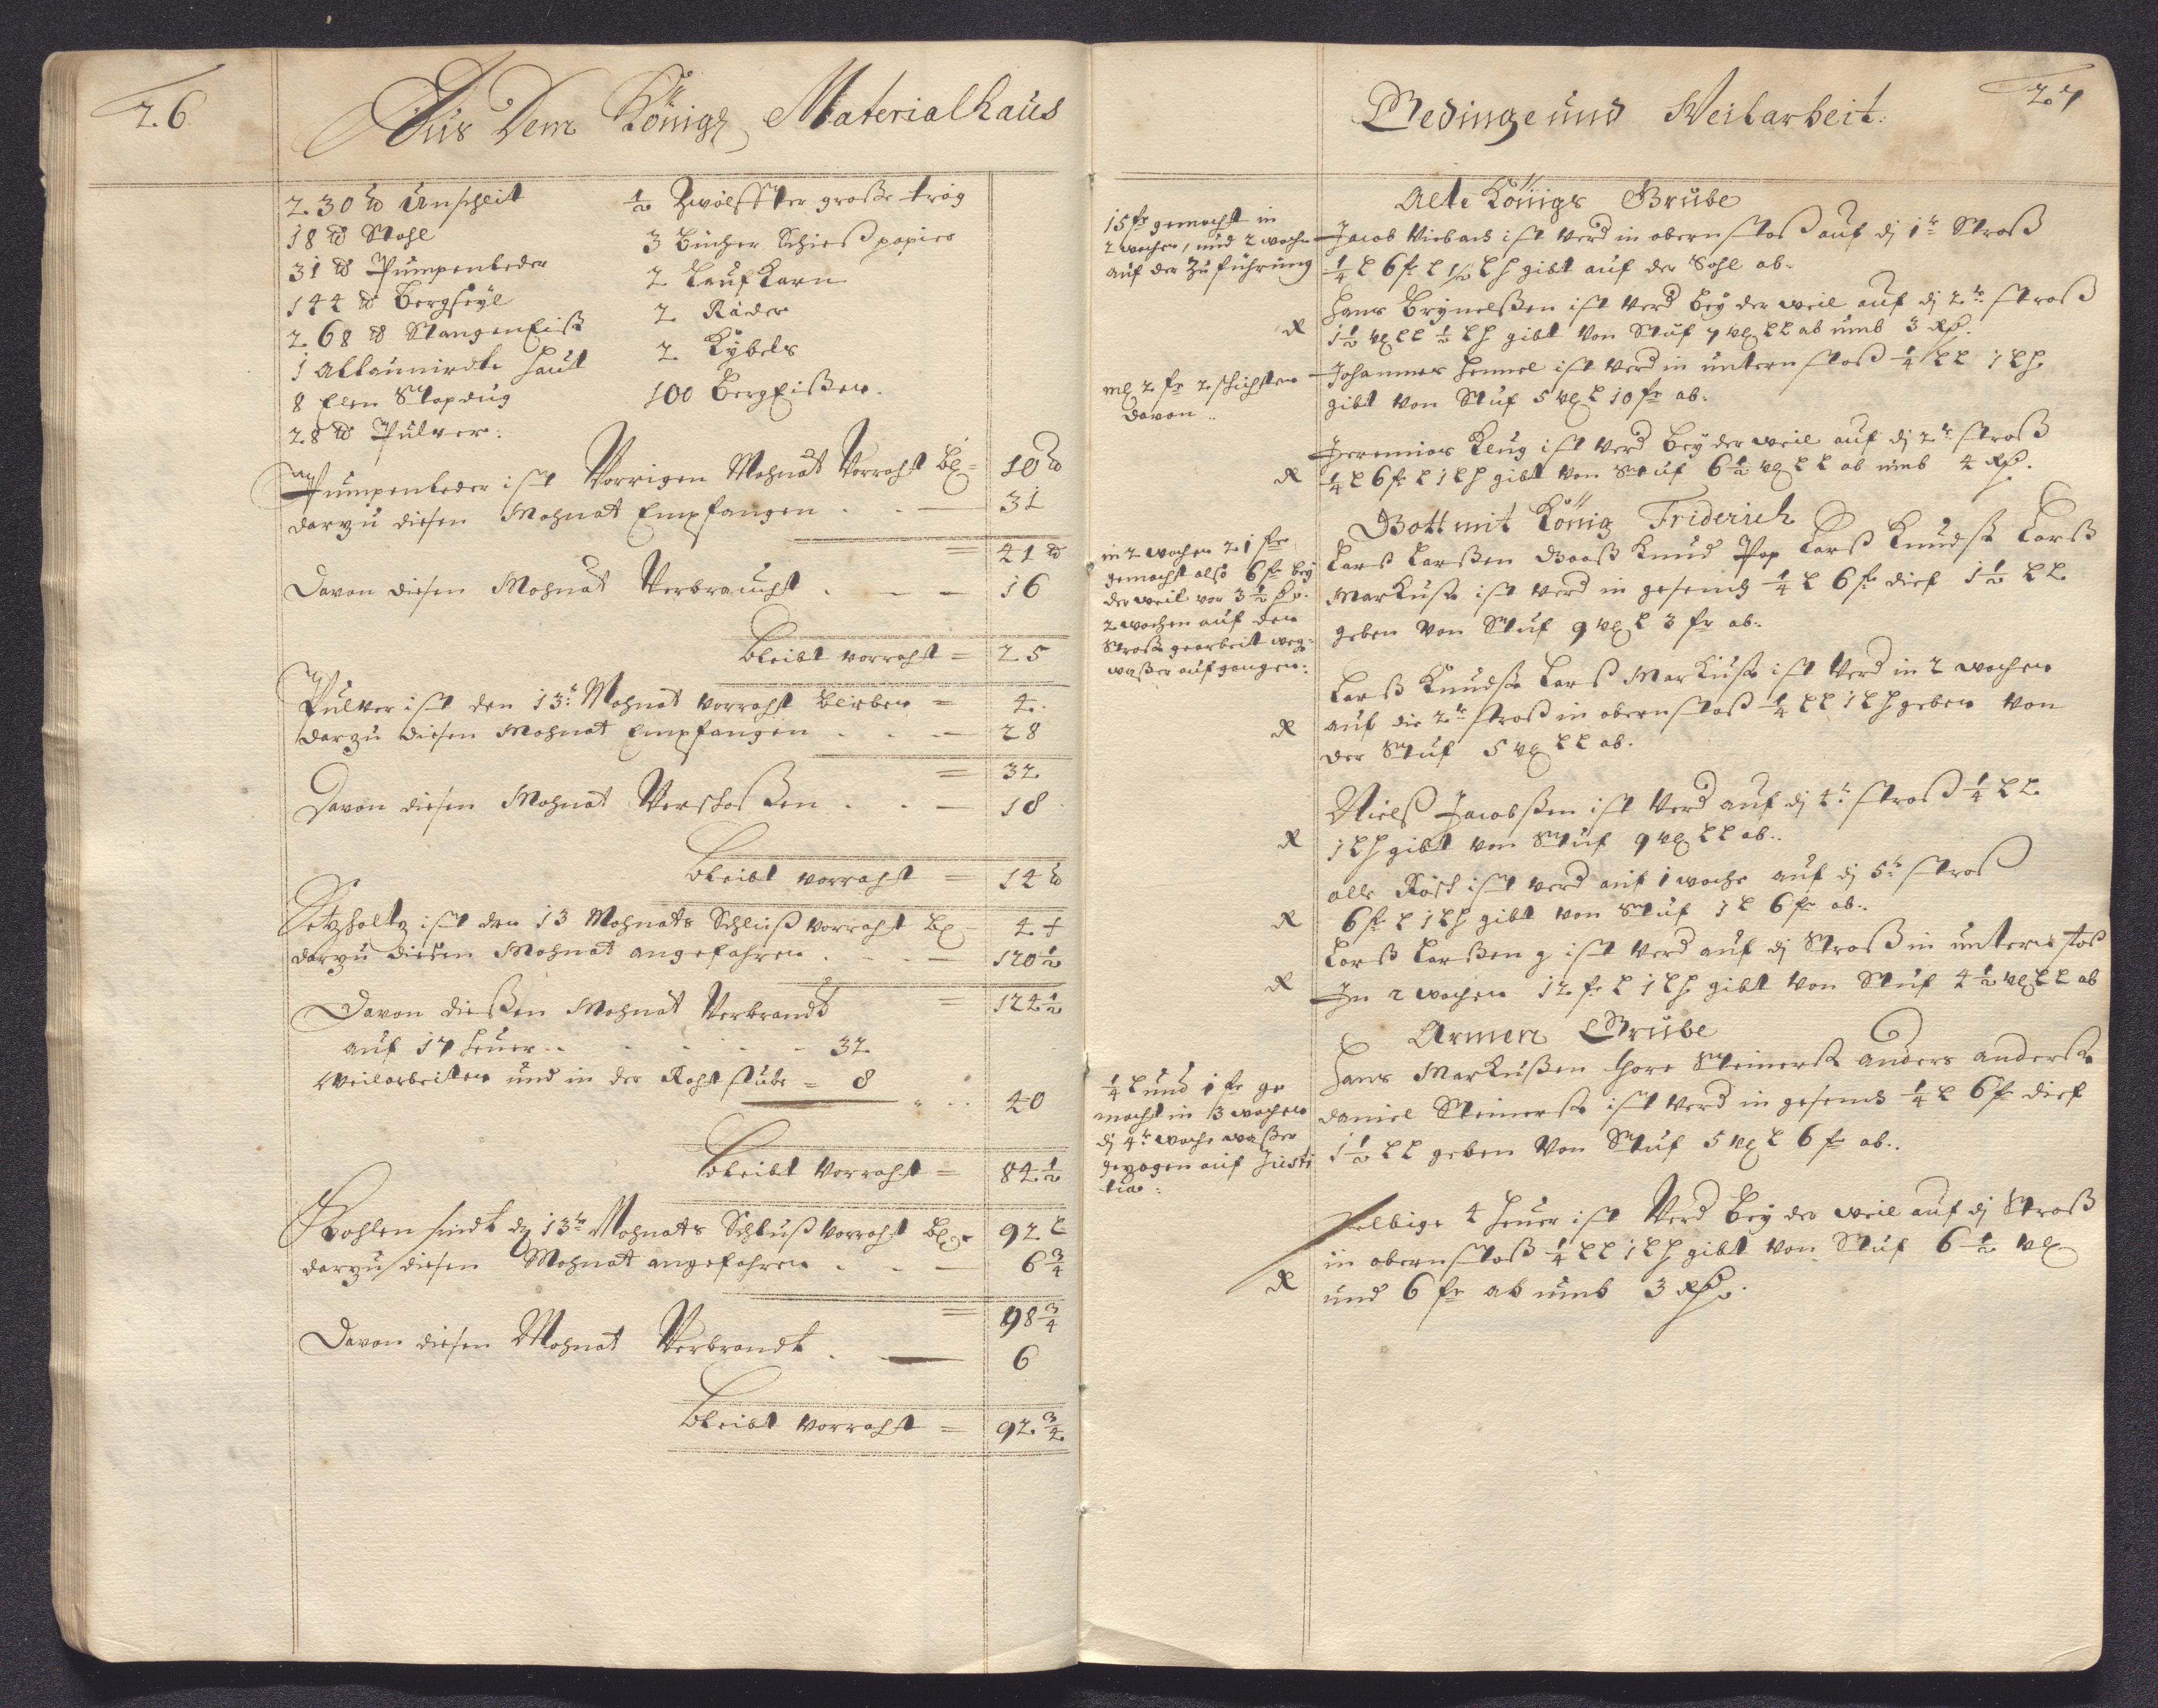 26
Aus Dem Königs Materialhaus
230 ℔ Unschleit
18 ℔ Stahl
31 ℔ Pumpenleder
144 ℔ Bergseÿl
268 ℔ Stangen Eiß
1 Allaunirdte Haut
8 Elen
28 ℔ Pulver:
½ Zwölffter große trög
3 Bücher Schieß papier
2 Lauf Karn
2 Räder
2 Kÿbels
100 BergEißen.
Pumpenleder ist Vorrigen Mohnat Vorraht Bl= 10 ℔
darzu diesen Mohnat Empfangen . . — 31
= 41 ℔
Davon diesen Mohnat Verbraucht . — — 16
Bleibt vorraht = 25
Pulver ist den 13: Mohnat vorraht blieben = 4.
darzu diesen Mohnat Empfangen . . — 28
= 32
Davon diesen Mohnat Verschoßen . . — 18
Bleibt vorraht = 14 ℔
Setzholtz ist den 13 Mohnats Schluß vorraht Bl= 4
darzu diesen Mohnat angefahren . . — 120½
= 124½
Davon dießen Mohnat Verbrandt
auf 17 feuer - - - - 32
Weilarbeiten und in der Rohtstube = 8
40
Bleibt Vorraht = 84½
Kohlen sindt d 13te Mohnats Schluß vorraht Bl= 92 L
darzu diesen Mohnat angefahren . . — 6¾
= 98¾
Davon diesen Mohnat Verbrandt . — 6
Bleibt vorraht = 92¾
27
Gedinge und Weilarbeit:
Alte Königs Grube
15 fr gemacht in
2 wochen, und 2 woche
auf der Zuführung
Jacob Viebach ist Verd in obern stoß auf dj 1te Stroß
¼ L 6 fr L ½ L h gibt auf der Sohl ab.
Hans Brÿnelßen ist Verd Beÿ der weil auf dj 2te stroß
R 1½ LL ½ L h gibt Von Stuf 7 LL ab umb 3 R
2 fr 2 schichten
davon..
Johannes Hennel ist Verd in untern stoß ¼ LL 1 L h
gibt Von Stuf 5 L 10 fr ab.
Jeremias Klug ist Verd Beÿ der weil auf dj 2te stroß
R ¼ L 6 fr L 1 L h gibt Von Stuf 6½ LL ab umb 4 R
Gott mit König Friderich
in 2 wochen 21 fr
gemacht also 6 fr beÿ
der weil vor 3½
2 wochen auf der
Stroße gearbeit weg
waßer aufgangen:
Lars Larßen Knud Pop Larß Knudße Larß
Markuße ist Verd in gesenck ¼ L 6 fr dief 1½ LL
geben Von Stuf 9 L 3 fr ab.
Larß Knudße Larß Markuße ist Verd in 2 wochen
R auf die 2te stroß in obern stoß ¼ LL 1 L h geben Von
der Stuf 5 LL ab.
Nielß Jacobßen ist Verd auf dj 4te stroß ¼ LL
R 1 L h gibt von Stuf 9 LL ab..
olle ist Verd auf 1 woche auf dj 5te stroß
R 6 fr L 1 L h gibt von Stuf 1 L 6 fr ab..
Larß Larßen g ist Verd auf dj Stroß in untern stoß
R In 2 wochen 12 fr L 1 L h gibt Von Stuf 4½ LL ab
Armen Grube
¼ L und 1 fr ge
macht in 3 wochen
dj 4te woche waßer
gezogen auf Justi
tia:
Hans Markußen Thore Steinerße Anders anderße
daniel Steinerße ist Verd in gesenck ¼ L 6 fr dief
1½ LL geben Von Stuf 5 L 6 fr ab..
selbige 4 Heuer ist Verd Beÿ der weil auf dj Stroß
in obern stoß ¼ LL 1 L h gibt Von Stuf 6½
R und 6 fr ab umb 3 R